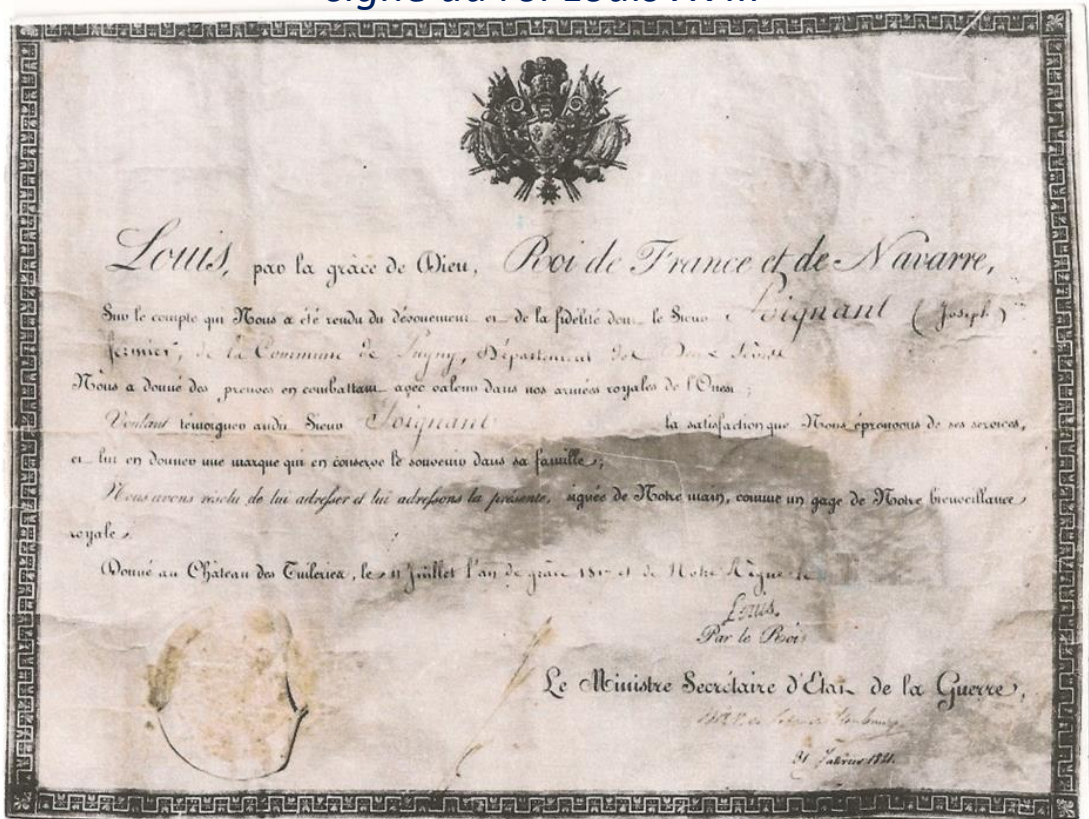 signé du roi Louis XVIII
Louis, par la grâce de Dieu, Roi de France et de Navarre,
Sur le compte qui Nous a été rendu du dévouement et de la fidélité dont le Sieur Soignant (Joseph)
fermier, de la Commune de Pugny, Département des Deux Sèvres
Nous a donné des preuves en combattant avec valeur dans nos armées royales de l'Ouest ;
Voulant témoigner audit Sieur Soignant la satisfaction que Nous éprouvons de ses services,
et lui en donner une marque qui en conserve le souvenir dans sa famille ;
Nous avons résolu de lui adresser et lui adressons la présente, signée de Notre main, comme un gage de Notre bienveillance
royale.
Donné au Château des Tuileries, le 11 Juillet l'an de grâce et de Notre Règne le
Louis.
Par le Roi
Le Ministre Secrétaire d'Etat de la Guerre,
1821.